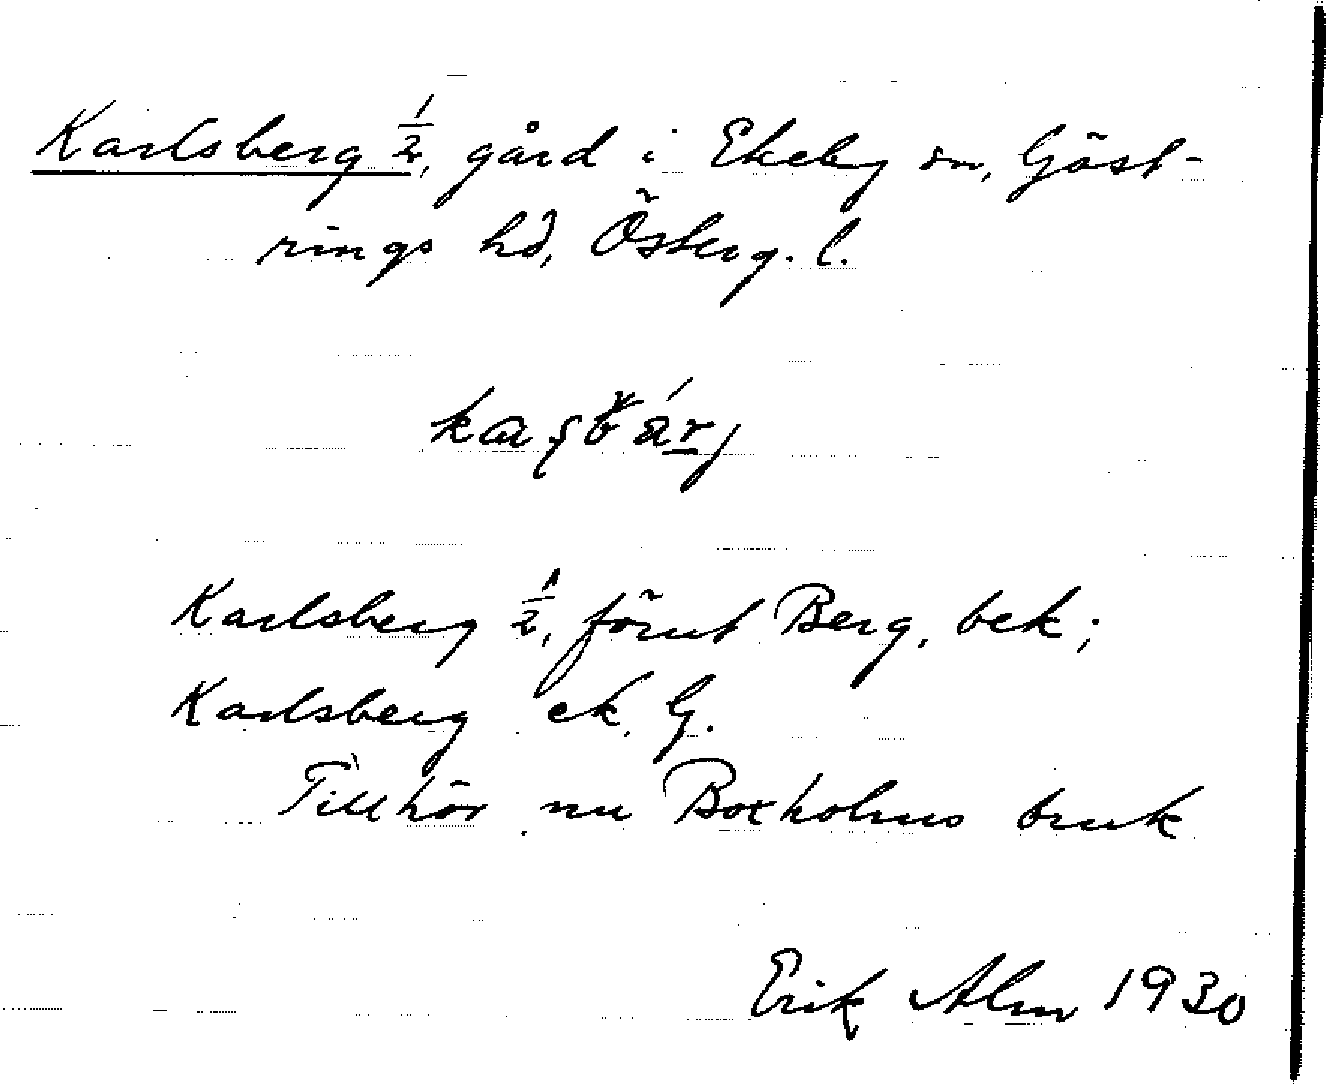 Karlsberg 1/2, gård i Ekeby sn, Göst-
rings hd, Österg. l.
Karlsberg 1/2, förut Berg, bek;
Karlsberg ek. G.
Tillhör nu Boxholms bruk
Erik Alm 1930